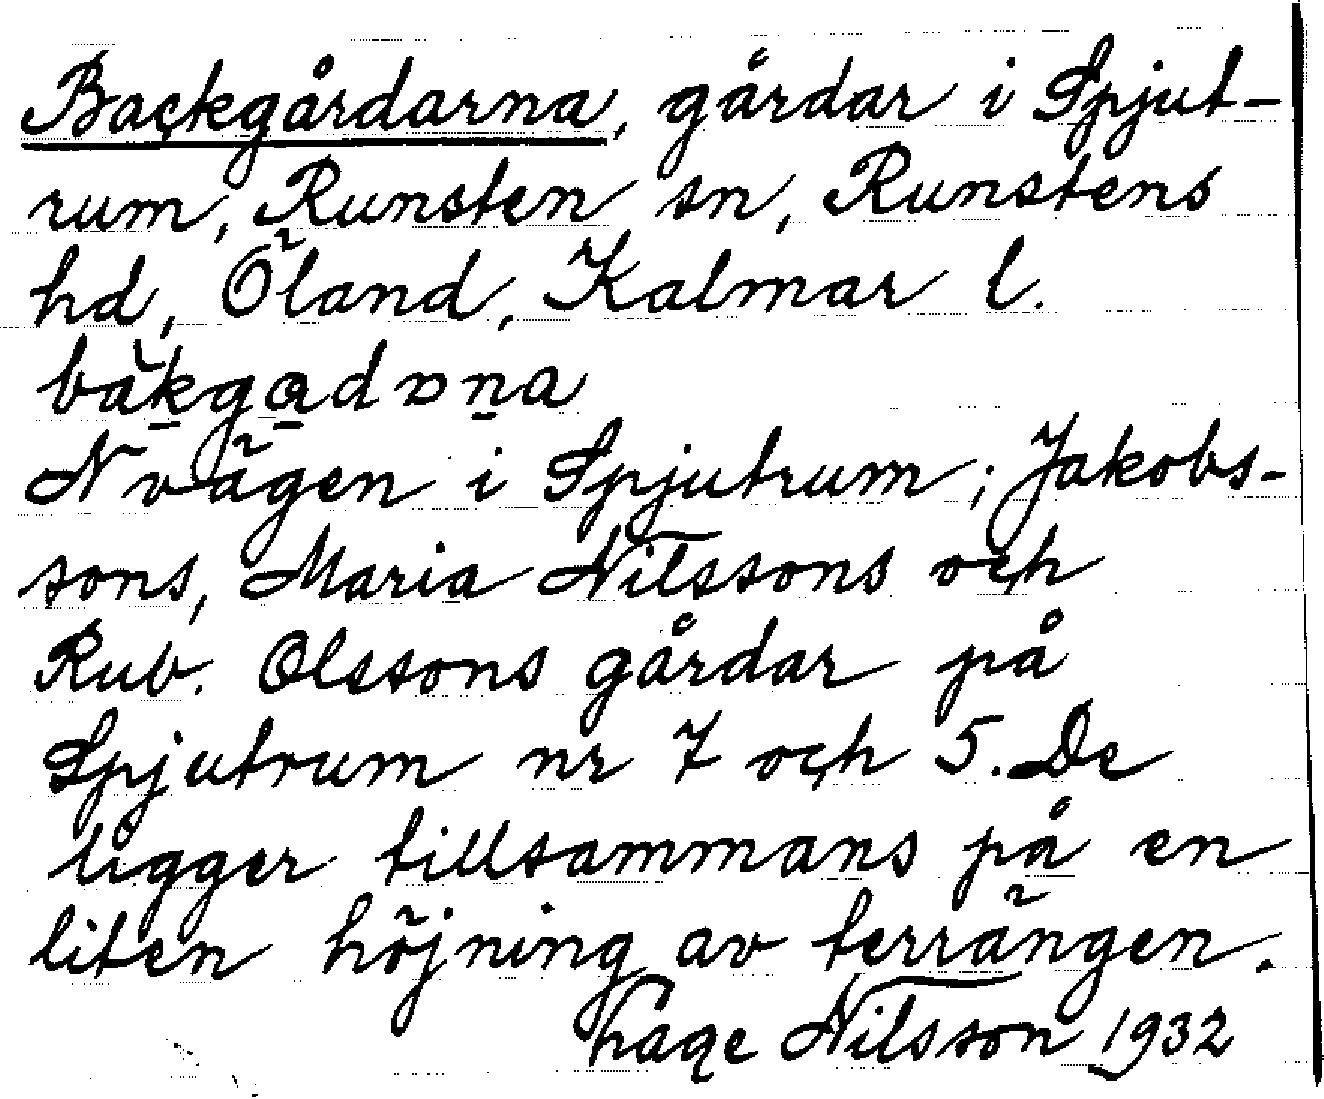 Backgårdarna, gårdar i Spjut-
rum, Runsten sn, Runstens
hd, Öland, Kalmar l.
båkgadɒna
N vägen i Spjutrum; Jakobs-
sons, Maria Nilssons och
Rub. Olssons gårdar på
Spjutrum nr 7 och 5. De
ligger tillsammans på en
liten höjning av terrängen.
Nilsson 1932